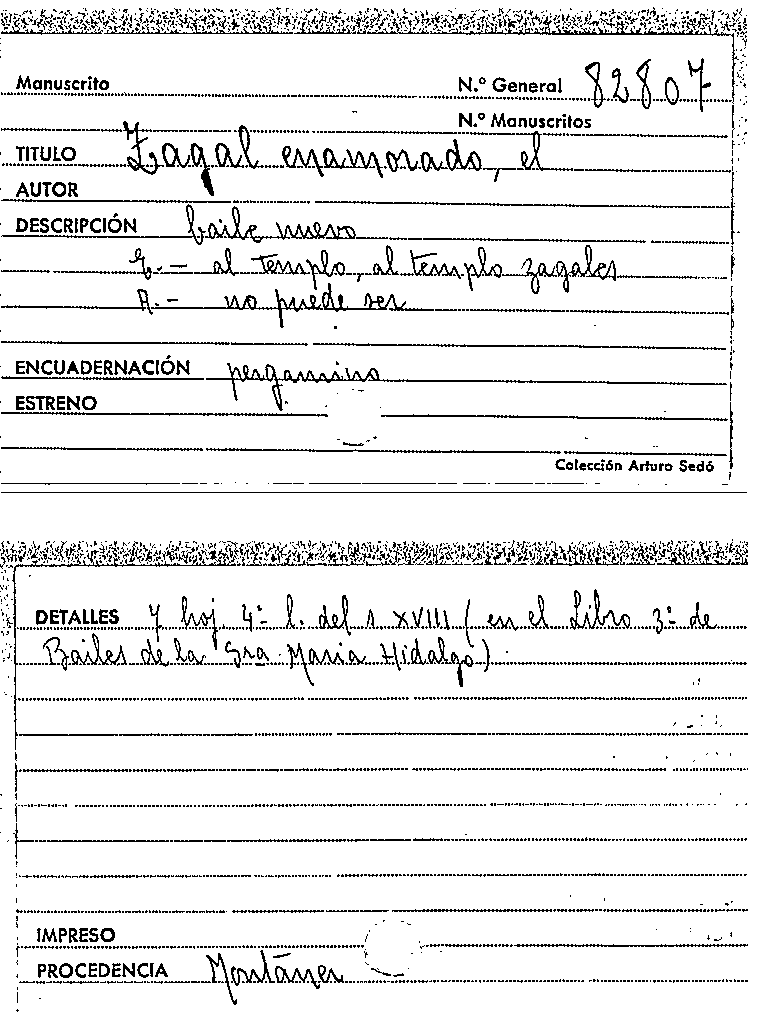 Manuscrito N.º General 82807
N.º Manuscritos
TITULO Zagal enamorado, el
AUTOR
DESCRIPCIÓN baile nuevo
E.- al templo, al templo zagales
A.- no puede ser
ENCUADERNACIÓN pergamino
ESTRENO
Colección Arturo Sedó
DETALLES 7 hoj. 4º l. del s XVIII (en el Libro 3º de
Bailes de la Sra Maria Hidalgo)
IMPRESO
PROCEDENCIA Montáner